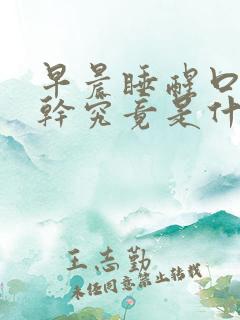 早晨睡醒口
幹究竟是什
王志勤
未经同意禁止转载